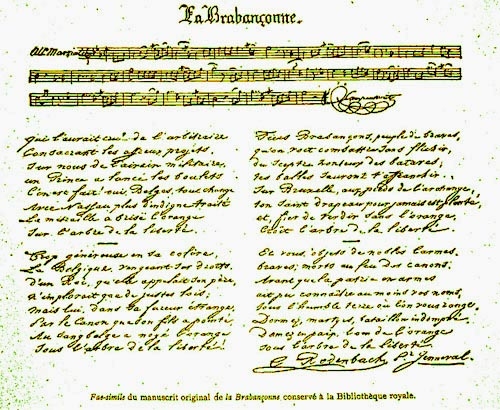 La Brabançonne.
All° Marziale
Campenhout
Qui l'aurait cru ! de l'arbitraire
Consacrant les affreux projets,
Sur nous de l'airain militaire,
un Prince a lancé les boulets.
C'en est fait ! oui, Belges, tout change
Avec Nassau plus d'indigne traité
La mitraille a brisé l'orange
Sur l'arbre de la liberté.
Trop généreuse en sa colère,
La Belgique, vengeant ses droits,
d'un Roi, qu'elle appelait son père,
n'implorait que de justes lois;
mais lui, dans sa fureur étrange,
Par le Canon que son fils a pointé,
Au sang belge a noyé l'orange
Sous l'arbre de la liberté !
Fiers Brabançons, peuple de braves,
qu'on voit combattre sans fléchir,
du sceptre honteux des bataves,
tes balles sauront t'affranchir.
Sur Bruxelle, aux pieds de l'archange,
ton saint drapeau pour jamais est planté,
et, fier de verdir sans l'orange,
Croît l'arbre de la liberté.
Et vous, objets de nobles larmes,
braves, morts au feu des canons,
Avant que la patrie en armes
ait pu connaître au moins vos noms,
Sous l'humble terre où l'on vous range,
Dormez, martyrs, bataillon indompté,
Dormez en paix, loin de l'orange
Sous l'arbre de la liberté.
C. Rodenbach Jenneval
Fac-simile du manuscrit original de la Brabançonne conservé à la Bibliothèque royale.